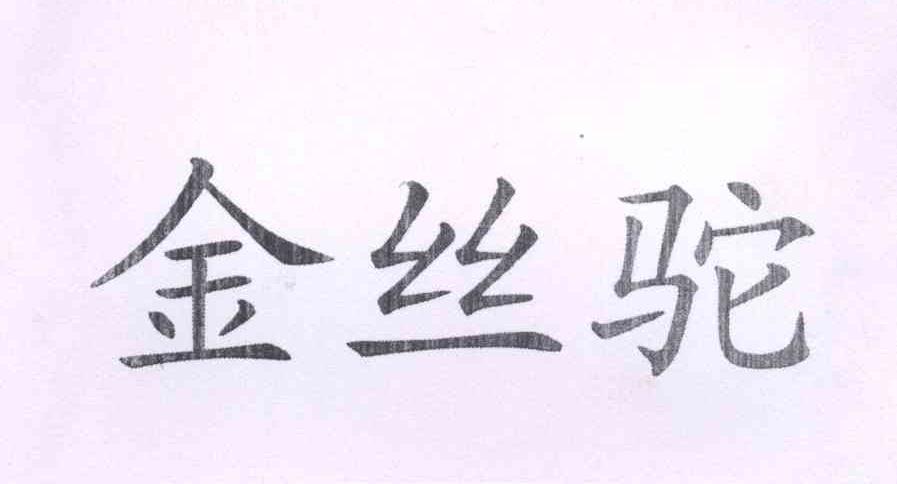 金丝驼